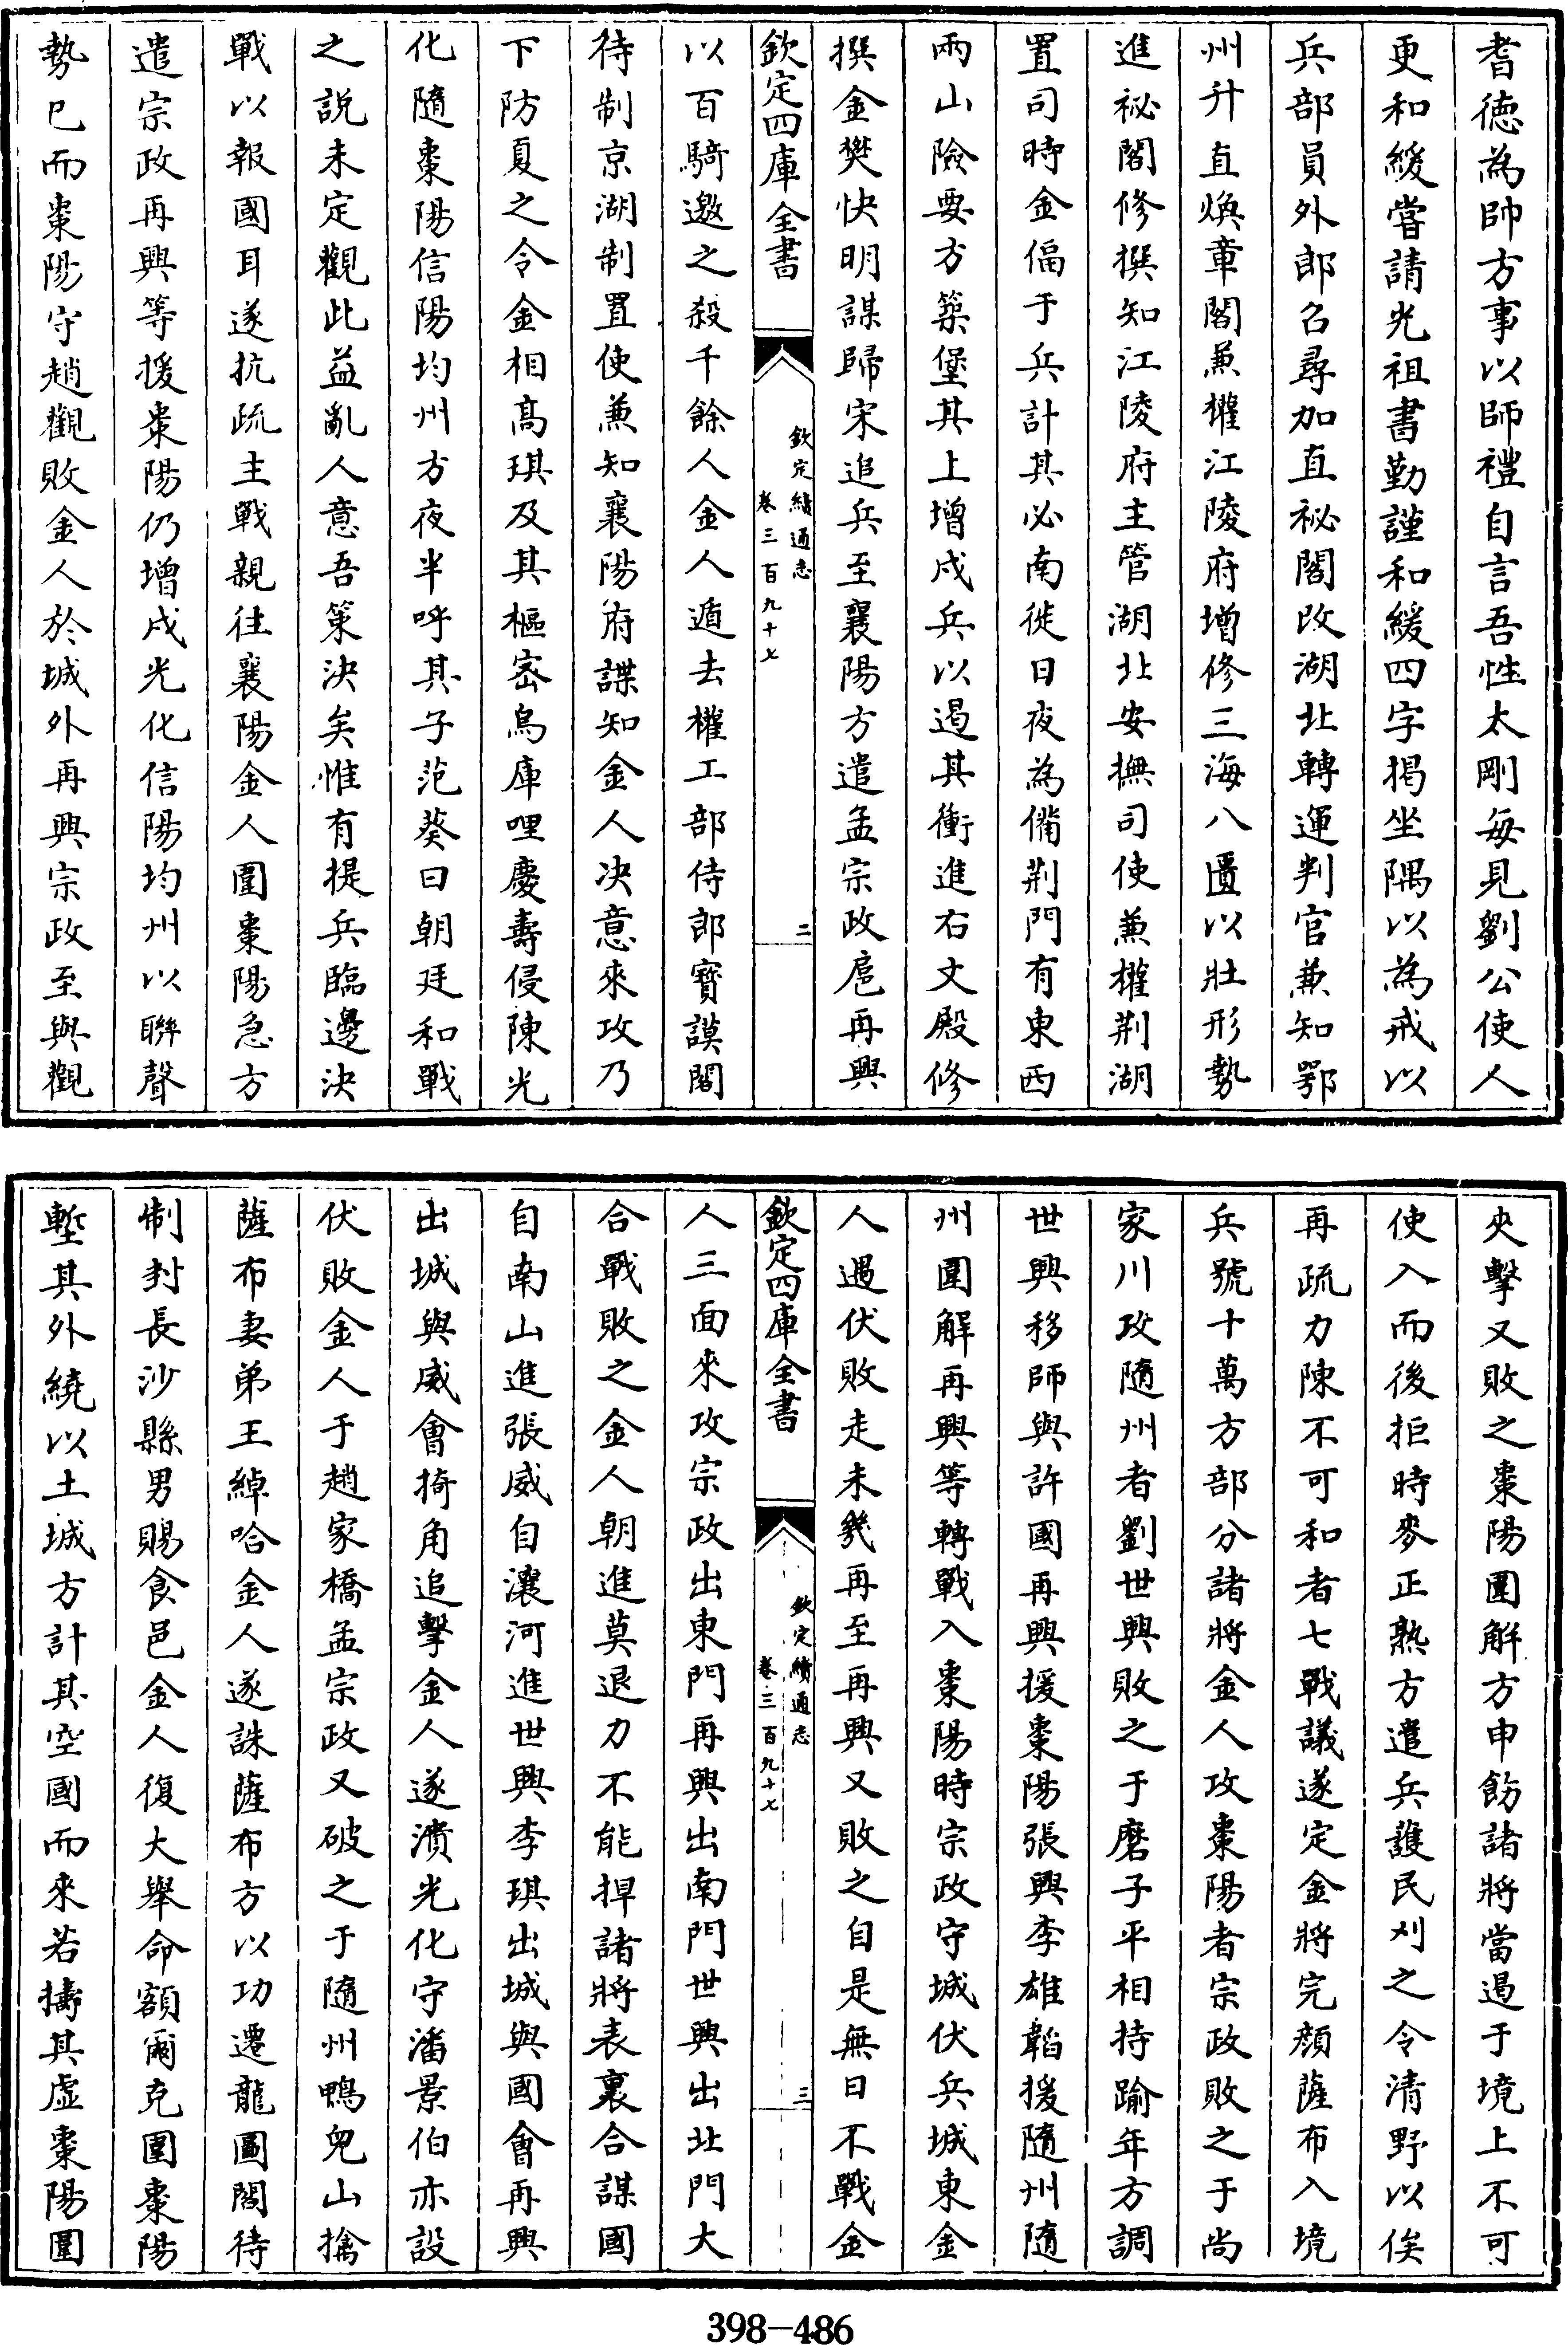 耆德為帥方事以師禮自言吾性太剛每見劉公使人
更和緩嘗請光祖書勤謹和緩四字揭坐隅以為戒以
兵部員外郎召尋加直秘閣改湖北轉運判官兼知鄂
州升直煥章閣兼權江陵府增修三海八匱以壯形勢
進祕閣修撰知江陵府主管湖北安撫司使兼權荆湖
置司時金偪于兵計其必南徙日夜為備荆門有東西
兩山險要方築堡其上增戍兵以遏其衝進右文殿修
撰金樊快明謀歸宋追兵至襄陽方遣孟宗政扈再興
欽定四庫全書
欽定續通志
卷三百九十七
二
以百騎邀之殺千餘人金人遁去權工部侍郎寳謨閣
待制京湖制置使兼知襄陽府諜知金人决意來攻乃
下防夏之令金相髙琪及其樞宻烏庫哩慶壽侵陳光
化隨棗陽信陽均州方夜半呼其子范葵曰朝廷和戰
之說未定觀此益亂人意吾策決矣惟有提兵臨邊決
戰以報國耳遂抗疏主戰親往襄陽金人圍棗陽急方
遣宗政再興等援棗陽仍增戍光化信陽均州以聯聲
勢已而棗陽守趙觀敗金人於城外再興宗政至與觀
夾擊又敗之棗陽圍解方申飭諸將當遏于境上不可
使入而後拒時麥正熟方遣兵護民刈之令清野以俟
再疏力陳不可和者七戰議遂定金將完顔薩布入境
兵號十萬方部分諸將金人攻棗陽者宗政敗之于尚
家川攻隨州者劉世興敗之于磨子平相持踰年方調
世興移師與許國再興援棗陽張興李雄韜援隨州隨
州圍解再興等轉戰入棗陽時宗政守城伏兵城東金
人遇伏敗走未幾再至再興又敗之自是無日不戰金
欽定四庫全書
欽定續通志
卷三百九十七
三
人三面來攻宗政出東門再興出南門世興出北門大
合戰敗之金人朝進莫退力不能捍諸將表裏合謀國
自南山進張威自瀼河進世興李琪出城與國會再興
出城與威會掎角追擊金人遂潰光化守潘景伯亦設
伏敗金人于趙家橋孟宗政又破之于隨州鴨兒山擒
薩布妻弟王綽哈金人遂誅薩布方以功遷龍圖閣待
制封長沙縣男賜食邑金人復大舉命額爾克圍棗陽
塹其外繞以土城方計其空國而來若擣其虛棗陽圍
398-486